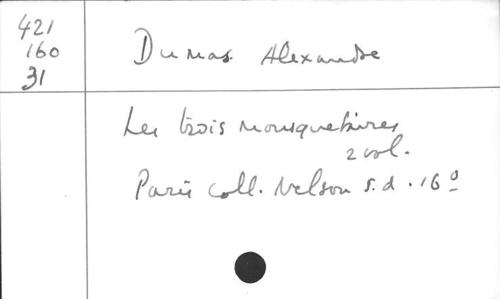 421
160
31
Dumas Alexandre
Les trois mousquetaires
2 vol.
Paris coll. Nelson s.d. 16º